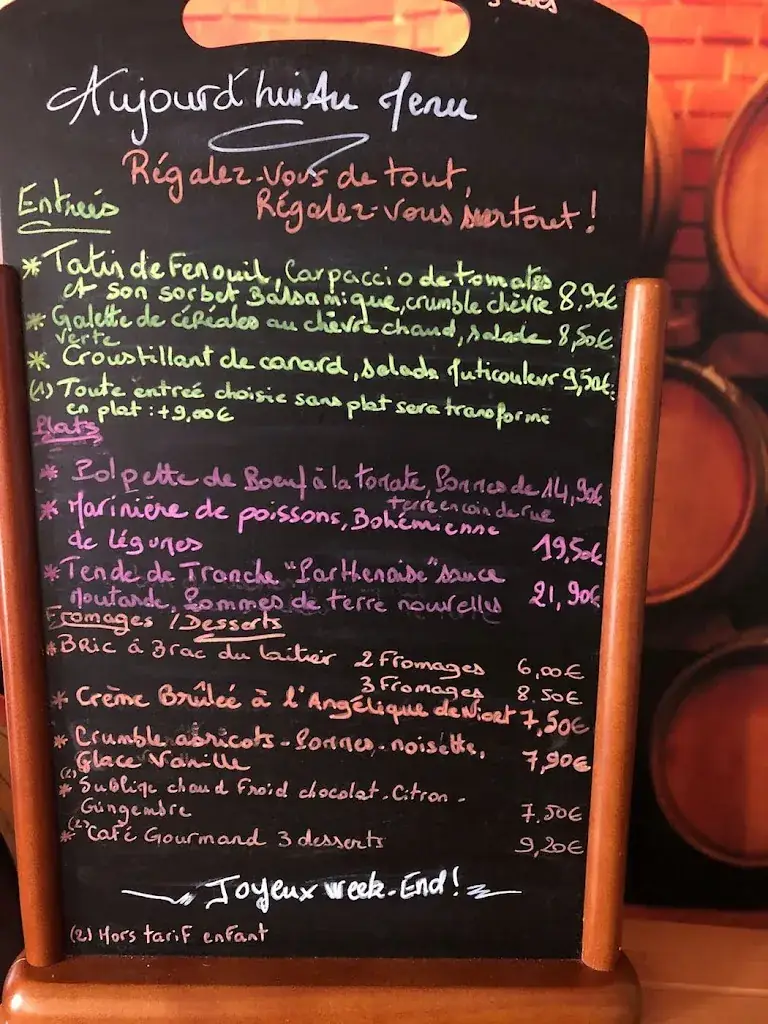 Aujourd'hui Au Menu
Régalez-vous de tout,
Régalez-vous surtout !
Entrées
* Tatin de Fenouil, Carpaccio de tomates
et son sorbet Balsamique, crumble chèvre 8,90€
* Galette de céréales au chèvre chaud, salade 8,50€
verte
* Croustillant de canard, salade Muticouleur 9,50€
(1) Toute entreé choisie sans plat sera transformé
en plat : +9,00€
Plats
* Polpette de Boeuf à la tomate, Pommes de 14,90€
terre en coin de rue
* Marinière de poissons, Bohémienne
de légumes 19,50€
* Tende de Tranche "Parthenaise" sauce
Moutarde, Pommes de terre nouvelles 21,90€
Fromages / Desserts
* Bric à Brac du laitier 2 Fromages 6,00€
3 Fromages 8,50€
* Crème Brûleé à l'Angélique de Niort 7,50€
* Crumble abricots - Pommes - noisette,
Glace Vanille 7,90€
(2)
* Sublime chaud Froid chocolat - Citron -
Gingembre 7,50€
(2)
* Café Gourmand 3 desserts 9,20€
Joyeux week-End !
(2) Hors tarif enfant